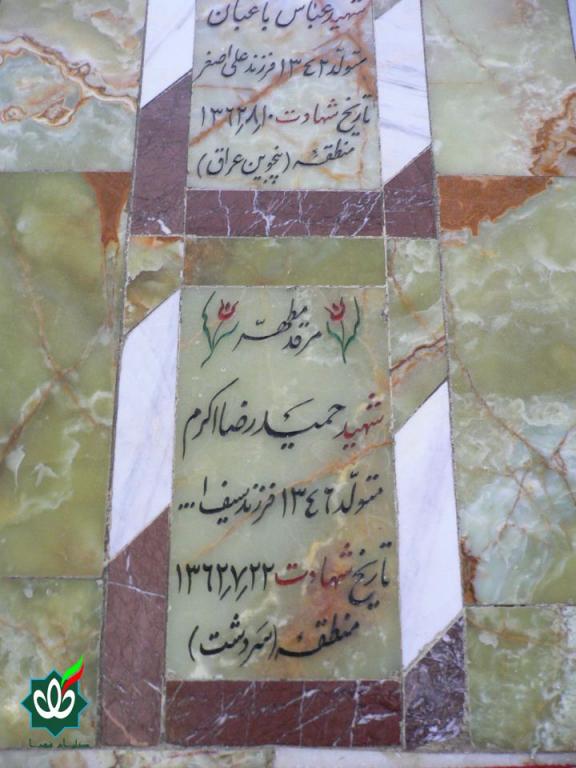 شهید عباس باغبان
متولد ۱۳۴۲ فرزند علی اصغر
تاریخ شهادت ۱۳۶۲٫۸٫۱۰
منطقه (پنجوین عراق)
مرقد مطهّر
شهید حمید رضا اکرم
متولّد ۱۳۴۶ فرزند سیف ا...
تاریخ شهادت ۱۳۶۲٫۷٫۲۲
منطقه (سردشت)